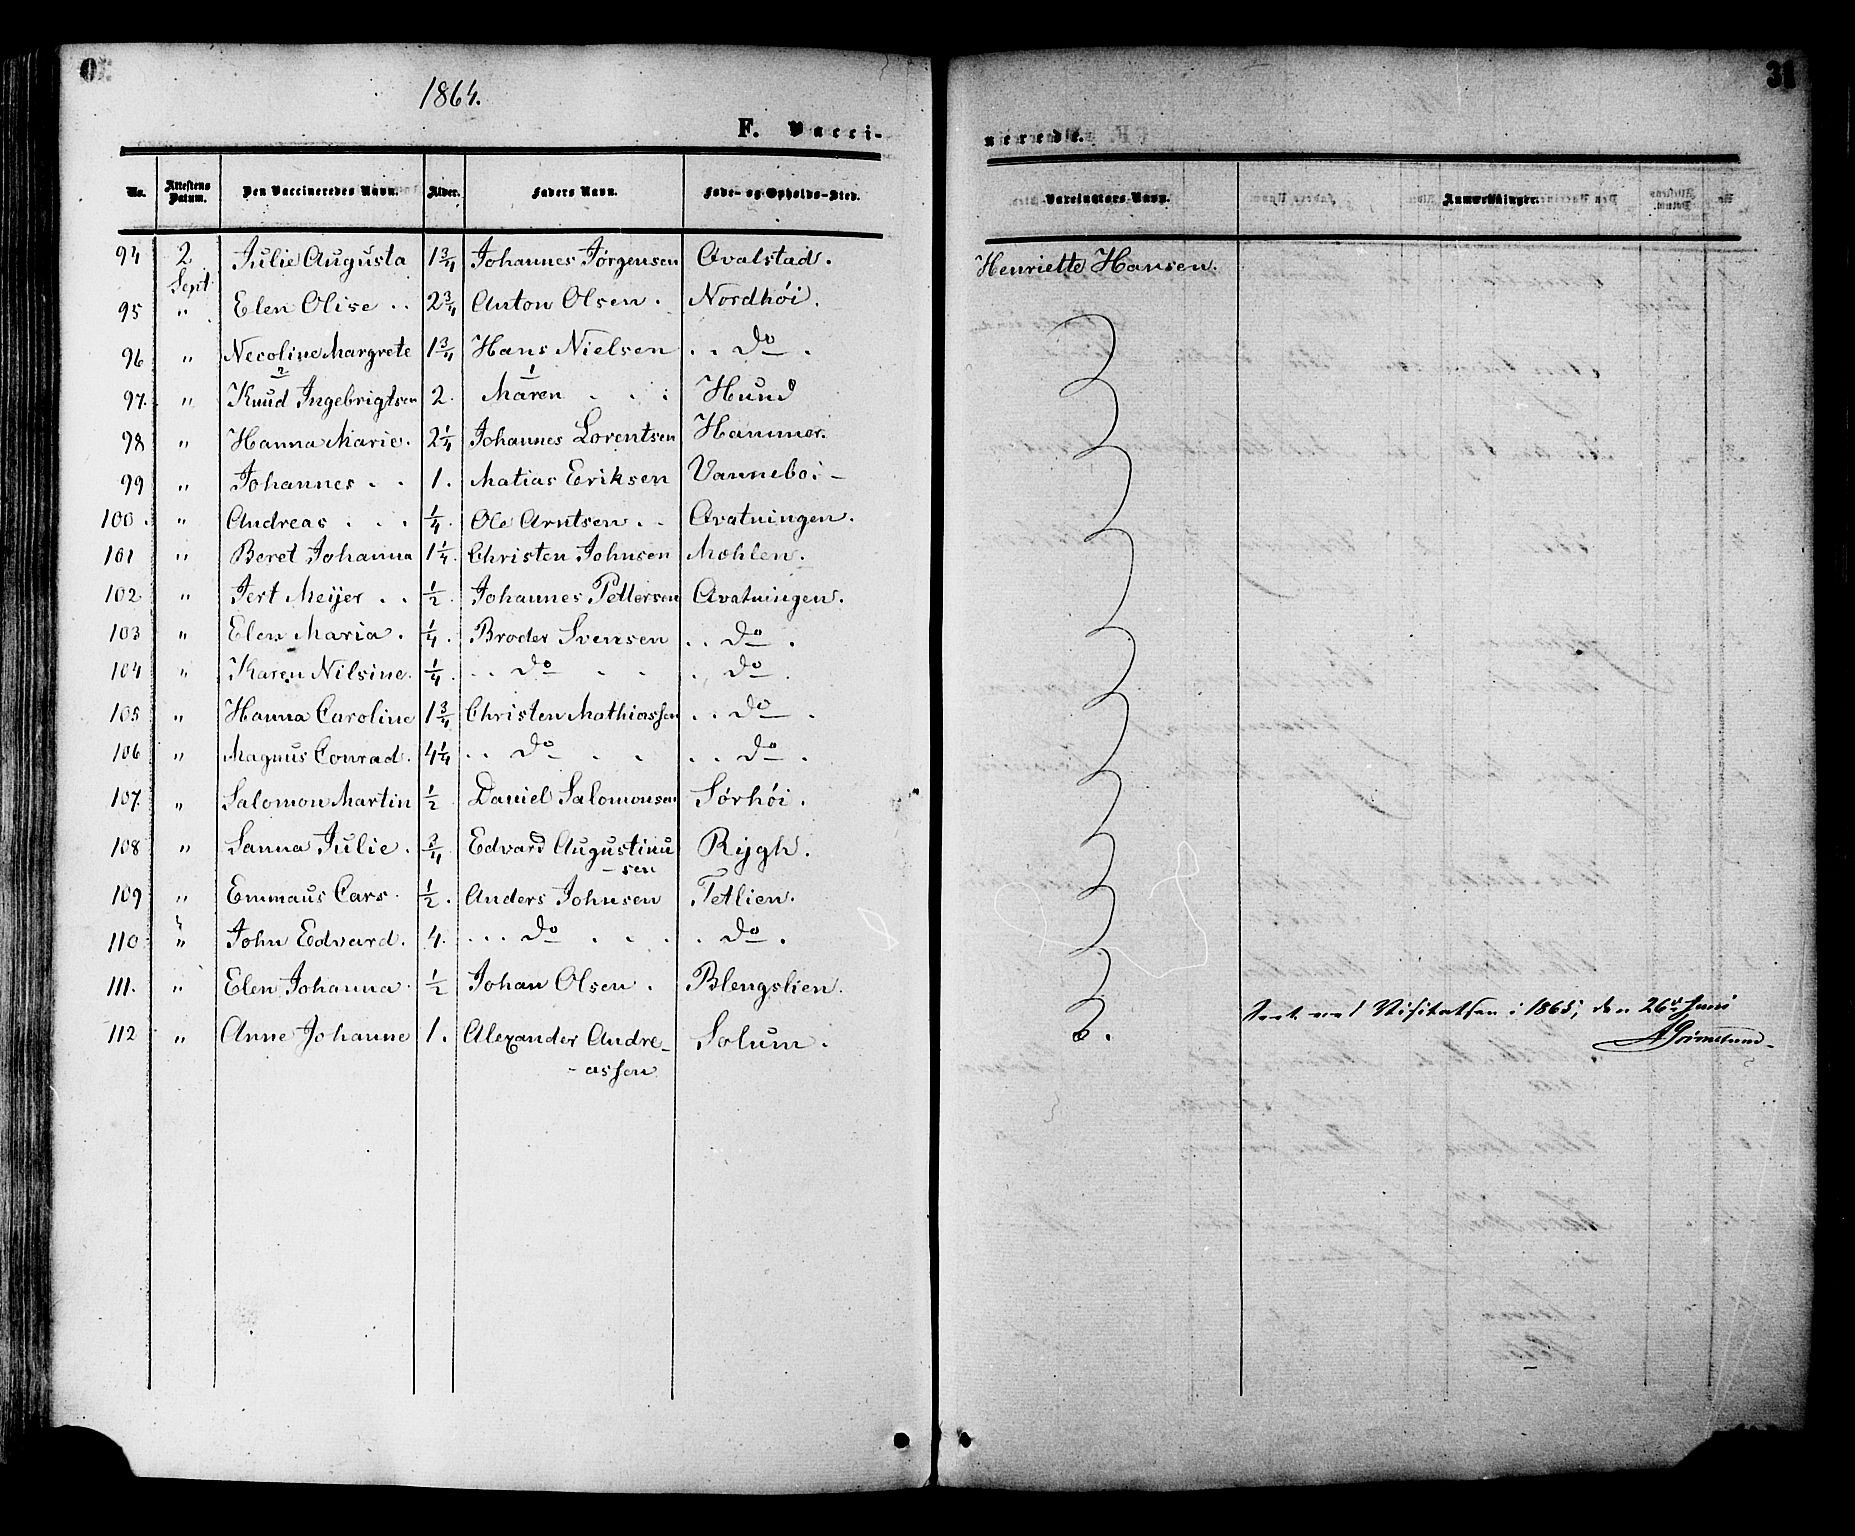 1864.
31
F. Vacci-
nerede.
No. Attestens Datum. Den Vaccineredes Navn. Alder. Faders Navn. Føde- og Opholds-Sted. Vaccinators Navn. Anmærkninger.
94 2 Sept Julie Augusta 1 3/4 Johannes Jørgensen Qvalstad. Henriette Hansen.
95 " Elen Olise .. 2 3/4 Anton Olsen . Nordhöi.
96 " Necoline Margrete 1 3/4 Hans Nielsen .. Do .
97. " Knud Ingebrigtsen 2. Maren . . : Hund
98 " Hanna Marie. 2 1/4 Johannes Lorentsen Hammer.
99 " Johannes . . 1. Matias Eriksen Vanneboi -
100. " Andreas . . . 1/4. Ole Arntsen . . Qvatningen.
101 " Beret Johanna 1 1/4. Christen Johnsen Mohlen.
102 " Jert Meijer . . 1/2. Johannes Pettersen Qvatningen.
103 " Elen Maria . 1/4. Broder Svensen .. Do .
104 " Karen Nilsine. 1/4. .. Do . . . Do .
105 " Hanna Caroline 1 3/4 Christen Mathiassen .. Do .
106 " Magnus Conrad. 4 1/4 .. Do . . .. Do .
107. " Salomon Martin 1/2 Daniel Salomonsen Sörhöi.
108 " Sanna Julie . 3/4 Edvard Augustinu
-sen Rygh.
109 " Emmaus Cars. 1/2. Anders Johnsen Tetlien.
110 " John Edvard. 4. ... Do . . . . Do .
111. " Elen Johanna. 1/2 Johan Olsen . Blengslien.
112 " Anne Johanne 1. Alexander Andre-
-assen Solum.
Visitatsen i 1865, den 26de Juni